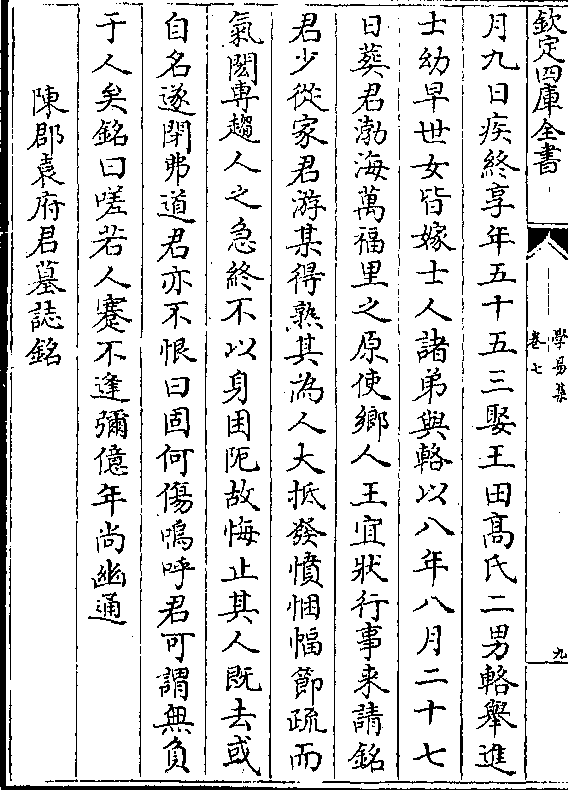 欽定四庫全書
學易集
卷七
九
月九日疾終享年五十五三娶王田髙氏二男輅舉進
士幼早世女皆嫁士人諸弟與輅以八年八月二十七
日葬君渤海萬福里之原使鄉人王宜狀行事来請銘
君少從家君游某得熟其為人大抵發憤悃愊節疏而
氣闊専趨人之急終不以身困阨故悔止其人既去或
自名遂閉弗道君亦不恨曰固何傷嗚呼君可謂無負
于人矣銘曰嗟若人蹇不逢彌億年尚幽通
陳郡袁府君墓誌銘